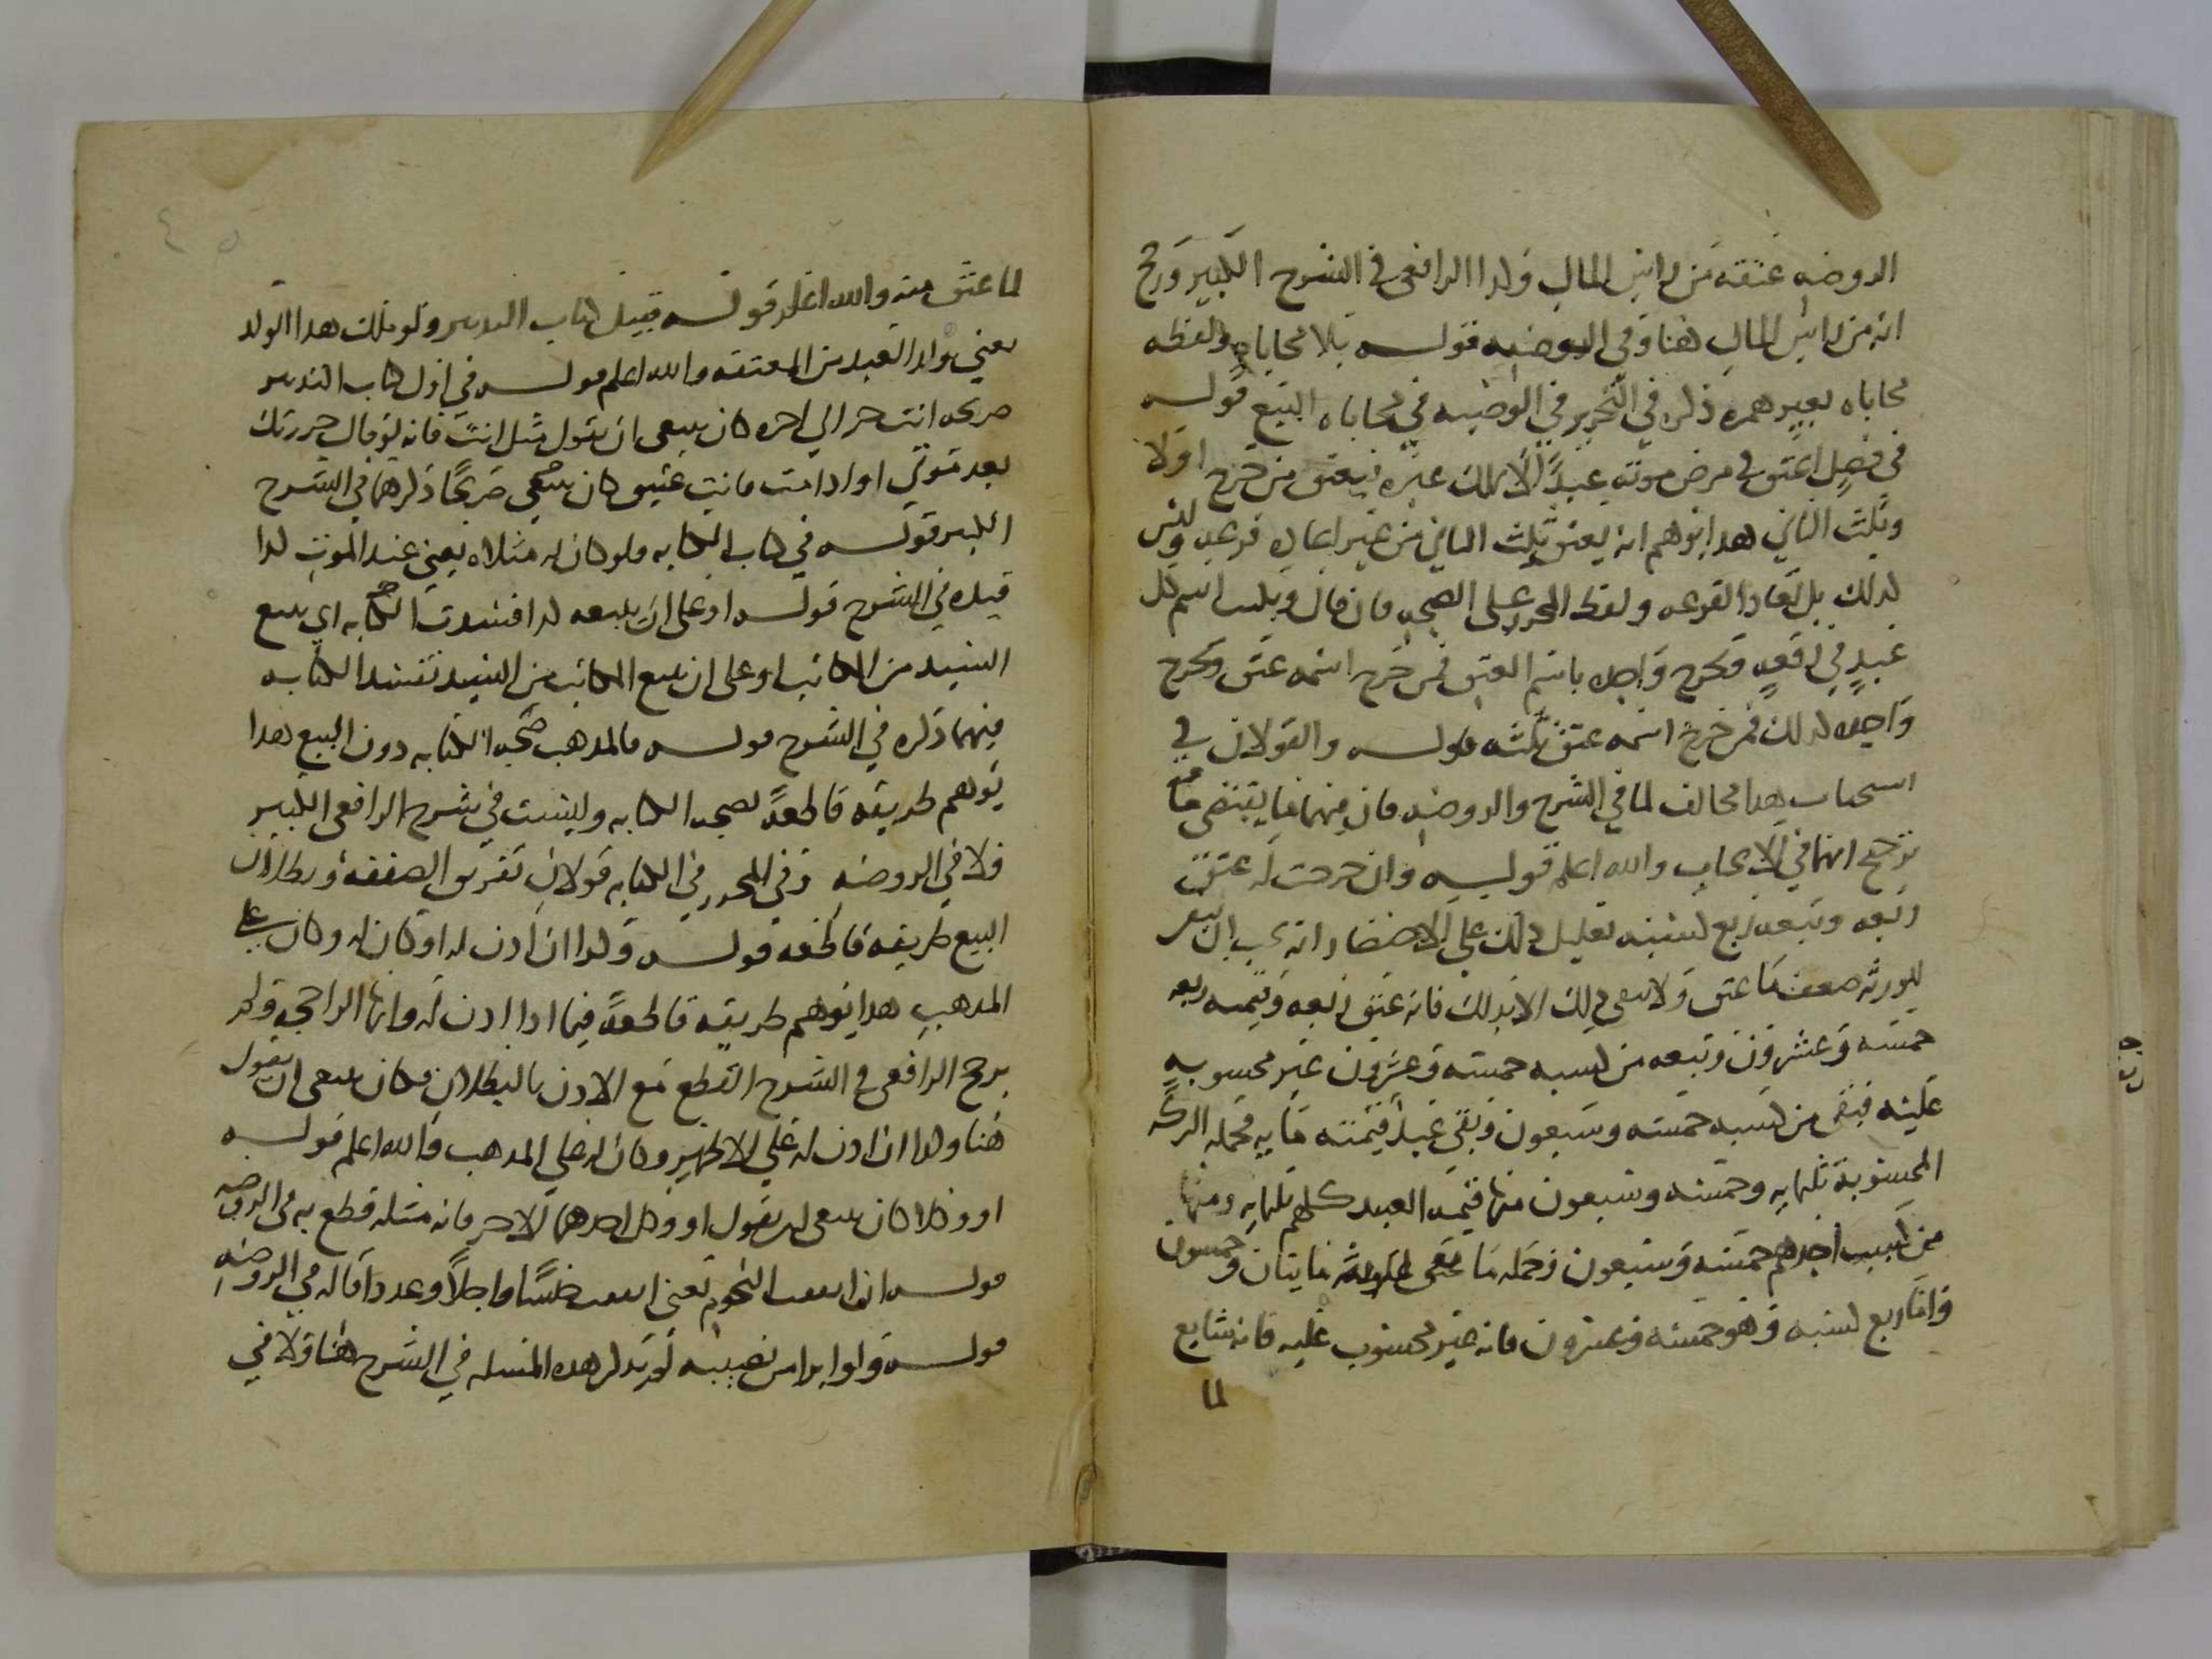 الروضه عتقه من راس المال وكذا الرافعى فى الشرح الكبير ورجح
انه من راس المال هنا وفي الوصيه قوله بلا محاباه ولفظه
محاباه بغير همره ذكره في التحرير في الوصيه في محاباه البيع قوله
في فصل اعتق في مرض موته عبدًا لا يملك غيره فيعتق من خرج اولا
وثلث الثاني هدا يوهم انه يعتق ثلث الثاني من غير اعاده قرعه وليس
كذلك بل تعاد القرعه ولفظ المحرر على الصحه فان قال ويكتب اسم كل
عبدٍ في رقعهٍ وتخرج واحده باسم العتق فمن خرج اسمه عتق وتخرج
واحده كذلك فمن خرج اسمه عتق ثلثه قوله والقولان في
استحباب هدا مخالف لما في الشرح والروضه فان فيهما ما يقتضى
ترجيح انهما في الايجاب والله اعلم قوله وان خرجت له عتق
ربعه وتبعه ربع كسبه تعليل ذلك على الاختصار انه يجب ان يبقى
للورثه ضعف ما عتق ولا يبقى ذلك الا بذلك فانه عتق ربعه وقيمته ربعه
خمسه وعشرون وتبعه من كسبه خمسه وعشرون غير محسوبه
عليه فبقى من كسبه خمسه وسبعون وبقى عبد قيمته مايه فجمله التركه
المحسوبة ثلثمايه وخمسه وسبعون منها قيمه العبيد كلهم ثلثمايه ومنها
من كسب احدهم خمسه وسبعون وجمله ما بقى للورثه مايتان وخمسون
واما ربع كسبه وهو خمسه وعشرون فانه غير محسوب عليه فانه تابع
لما
لما عتق منه والله اعلم قوله قبيل كتاب التدبير ولو ملك هدا الولد
يعني ولد العبد من المعتقه والله اعلم قوله في اول كتاب التدبير
صريحه انت حر الي اخره كان ينبغى ان يقول مثل انت فانه لو قال حررتك
بعد موتي او ادا مت فانت عتيق كان صريحًا ذكرهما في الشرح
الكبير قوله في كتاب الكتابه ولو كان له مثلاه يعني عند الموت كدا
قيده في الشرح قوله او على ان يبيعه كدا فسدت الكتابه اي يبيع
السيد من المكاتب او على ان يبيع المكاتب من السيد تفسد الكتابه
فيهما ذكره في الشرح قوله فالمدهب صحه الكتابه دون البيع هدا
يوهم طريقه قاطعهً بصحه الكتابه وليست في شرح الرافعى الكبير
ولا في الروضه وفي المحرر في الكتابه قولان تفريق الصفقه وبطلان
البيع طريقه قاطعه قوله وكدا ان ادن له او كان له وكان على
المدهب هدا يوهم طريقه قاطعهً فيما ادا ادن له وانها الراجحه ولم
يرجح الرافعى في الشرح القطع مع الادن بالبطلان فكان ينبغى ان يقول
هنا وكدا ان ادن له على الاظهر وكان له على المدهب والله اعلم قوله
او وكلا كان ينبغى ان يقول او وكل احدهما الاخر فانه مثله قطع به في الروضه
قوله ان اتفقت النجوم يعني اتفقت جنسًا واجلاً وعددا قاله في الروضه
قوله ولو ابرا من نصيبه لم يدكر هده المسله في الشرح هنا ولا في